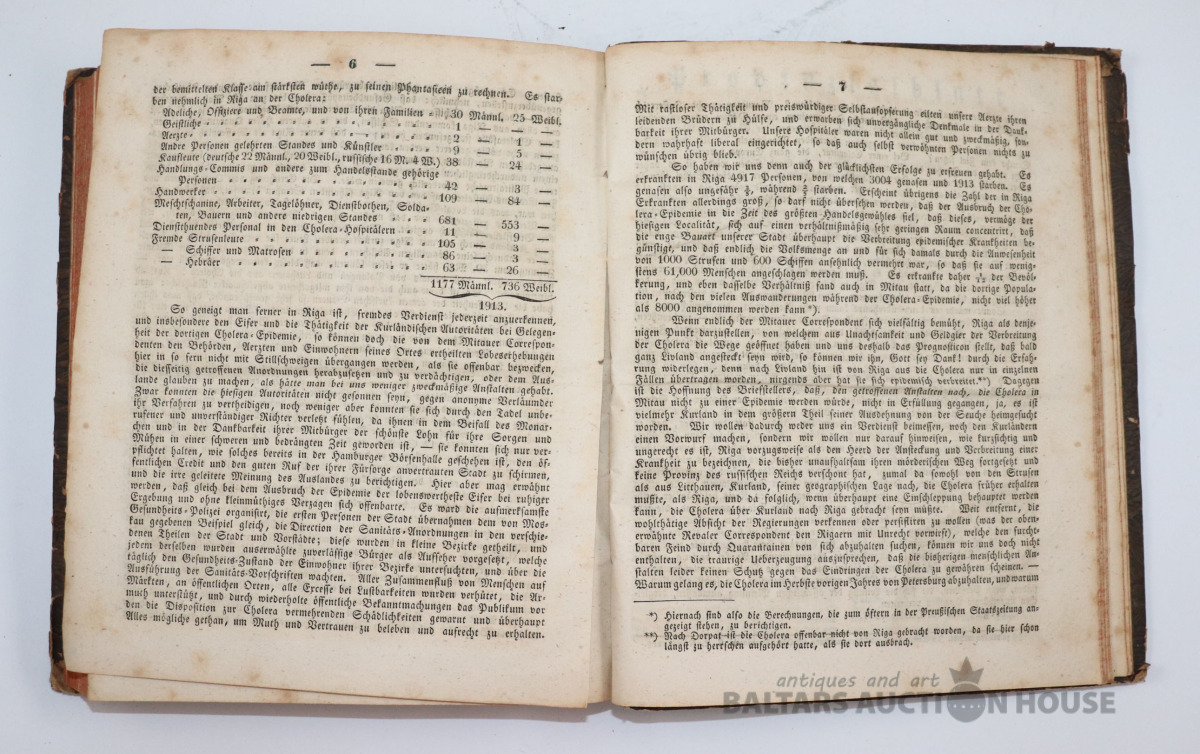 — 6 —
der bemittelten Klasse am stärksten wüthe, zu seinen Phantasieen zu rechnen. Es star-
ben nehmlich in Riga an der Cholera:
Adeliche, Offiziere und Beamte, und von ihren Familien - 30 Männl. 25 Weibl.
Geistliche - - - - - - - - - - 1 — — —
Aerzte - - - - - - - - - - 2 — 1 —
Andre Personen gelehrten Standes und Künstler - - - 9 — 5 —
Kaufleute (deutsche 22 Männl., 20 Weibl., russische 16 M. 4 W.) 38 — 24 —
Handlungs-Commis und andere zum Handelsstande gehörige
Personen - - - - - - - - - 42 — 3 —
Handwerker - - - - - - - - - 109 — 84 —
Meschtschanine, Arbeiter, Tagelöhner, Dienstbothen, Solda-
ten, Bauern und andere niedrigen Standes - - - 681 — 553 —
Diensthuendes Personal in den Cholera-Hospitälern - - 11 — 9 —
Fremde Strusenleute - - - - - - - - 105 — 3 —
— Schiffer und Matrosen - - - - - - 86 — 3 —
— Hebräer - - - - - - - - 63 — 26 —
1177 Männl. 736 Weibl.
1913.
So geneigt man ferner in Riga ist, fremdes Verdienst jederzeit anzuerkennen,
und insbesondere den Eifer und die Thätigkeit der Kurländischen Autoritäten bei Gelegen-
heit der dortigen Cholera-Epidemie, so können doch die von dem Mitauer Correspon-
denten den Behörden, Aerzten und Einwohnern seines Ortes ertheilten Lobeserhebungen
hier in so fern nicht mit Stillschweigen übergangen werden, als sie offenbar bezwecken,
die diesseitig getroffenen Anordnungen herabzusetzen und zu verdächtigen, oder dem Aus-
lande glauben zu machen, als hätte man bei uns weniger zweckmäßige Anstalten gehabt.
Zwar konnten die hiesigen Autoritäten nicht gesonnen seyn, gegen anonyme Verläumder
ihr Verfahren zu vertheidigen, noch weniger aber konnten sie sich durch den Tadel unbe-
rufener und unverständiger Richter verletzt fühlen, da ihnen in dem Beifall des Monar-
chen und in der Dankbarkeit ihrer Mitbürger der schönste Lohn für ihre Sorgen und
Mühen in einer schweren und bedrängten Zeit geworden ist, — sie konnten sich nur ver-
pflichtet halten, wie solches bereits in der Hamburger Börsenhalle geschehen ist, den öf-
fentlichen Credit und den guten Ruf der ihrer Fürsorge anvertrauten Stadt zu schirmen,
und die irre geleitete Meinung des Auslandes zu berichtigen. Hier aber mag erwähnt
werden, daß gleich bei dem Ausbruch der Epidemie der lobenswertheste Eifer bei ruhiger
Ergebung und ohne kleinmüthiges Verzagen sich offenbarte. Es ward die aufmerksamste
Gesundheits-Polizei organisirt, die ersten Personen der Stadt übernahmen dem von Mos-
kau gegebenen Beispiel gleich, die Direction der Sanitäts-Anordnungen in den verschie-
denen Theilen der Stadt und Vorstädte; diese wurden in kleine Bezirke getheilt, und
jedem derselben wurden auserwählte zuverlässige Bürger als Aufseher vorgesetzt, welche
täglich den Gesundheits-Zustand der Einwohner ihrer Bezirke untersuchten, und über die
Ausführung der Sanitäts-Vorschriften wachten. Aller Zusammenfluß von Menschen auf
Märkten, an öffentlichen Orten, alle Excesse bei Lustbarkeiten wurden verhütet, die Ar-
muth unterstützt, und durch wiederholte öffentliche Bekanntmachungen das Publikum vor
den die Disposition zur Cholera vermehrenden Schädlichkeiten gewarnt und überhaupt
Alles mögliche gethan, um Muth und Vertrauen zu beleben und aufrecht zu erhalten.
— 7 —
Mit rastloser Thätigkeit und preiswürdiger Selbstaufopferung eilten unsere Aerzte ihren
leidenden Brüdern zu Hülfe, und erwarben sich unvergängliche Denkmale in der Dank-
barkeit ihrer Mitbürger. Unsere Hospitäler waren nicht allein gut und zweckmäßig, son-
dern wahrhaft liberal eingerichtet, so daß auch selbst verwöhnten Personen nichts zu
wünschen übrig blieb.
So haben wir uns denn auch der glücklichsten Erfolge zu erfreuen gehabt. Es
erkrankten in Riga 4917 Personen, von welchen 3004 genasen und 1913 starben. Es
genasen also ungefähr ⅗, während ⅖ starben. Erscheint übrigens die Zahl der in Riga
Erkrankten allerdings groß, so darf nicht übersehen werden, daß der Ausbruch der Cho-
lera-Epidemie in die Zeit des größten Handelsgewühles fiel, daß dieses, vermöge der
hiesigen Localität, sich auf einen verhältnißmäßig sehr geringen Raum concentrirt, daß
die enge Bauart unserer Stadt überhaupt die Verbreitung epidemischer Krankheiten be-
günstige, und daß endlich die Volksmenge an und für sich damals durch die Anwesenheit
von 1000 Strusen und 600 Schiffen ansehnlich vermehrt war, so daß sie auf wenig-
stens 61,000 Menschen angeschlagen werden muß. Es erkrankte daher der Bevöl-
kerung, und eben dasselbe Verhältniß fand auch in Mitau statt, da die dorrige Popula-
tion, nach den vielen Auswanderungen während der Cholera-Epidemie, nicht viel höher
als 8000 angenommen werden kann *).
Wenn endlich der Mitauer Correspondent sich vielfältig bemüht, Riga als denje-
nigen Punkt darzustellen, von welchem aus Unachtsamkeit und Geldgier der Verbreitung
der Cholera die Wege geöffnet haben und uns deshalb das Prognosticon stellt, daß bald
ganz Livland angesteckt seyn wird, so können wir ihn, Gott sey Dank! durch die Erfah-
rung widerlegen, denn nach Livland hin ist von Riga aus die Cholera nur in einzelnen
Fällen übertragen worden, nirgends aber hat sie sich epidemisch verbreitet.**) Dagegen
ist die Hoffnung des Briefstellers, daß, den getroffenen Anstalten nach, die Cholera in
Mitau nicht zu einer Epidemie werden würde, nicht in Erfüllung gegangen, ja, es ist
vielmehr Kurland in dem größern Theil seiner Ausdehnung von der Seuche heimgesucht
worden. Wir wollen dadurch weder uns ein Verdienst beimessen, noch den Kurländern
einen Vorwurf machen, sondern wir wollen nur darauf hinweisen, wie kurzsichtig und
ungerecht es ist, Riga vorzugsweise als den Heerd der Ansteckung und Verbreitung einer
Krankheit zu bezeichnen, die bisher unaufhaltsam ihren mörderischen Weg fortgesetzt und
keine Provinz des russischen Reichs verschont hat, zumal da sowohl von den Strusen
als aus Litthauen, Kurland, seiner geographischen Lage nach, die Cholera früher erhalten
mußte, als Riga, und da folglich, wenn überhaupt eine Einschleppung behauptet werden
kann, die Cholera über Kurland nach Riga gebracht seyn müßte. Weit entfernt, die
wohlthätige Absicht der Regierungen verkennen oder persifliren zu wollen (was der oben-
erwähnte Revaler Correspondent den Rigaern mit Unrecht vorwirft), welche den furcht-
baren Feind durch Quarantainen von sich abzuhalten suchen, können wir uns doch nicht
enthalten, die traurige Ueberzeugung auszusprechen, daß die bisherigen menschlichen An-
stalten leider keinen Schutz gegen das Eindringen der Cholera zu gewähren scheinen. —
Warum gelang es, die Cholera im Herbste vorigen Jahres von Petersburg abzuhalten, und warum
*) Hiernach sind also die Berechnungen, die zum öftern in der Preußischen Staatszeitung an-
gezeigt stehen, zu berichtigen.
**) Nach Dorpat ist die Cholera offenbar nicht von Riga gebracht worden, da sie hier schon
längst zu herrschen aufgehört hatte, als sie dort ausbrach.
antiques and art
BALTARS AUCTION HOUSE